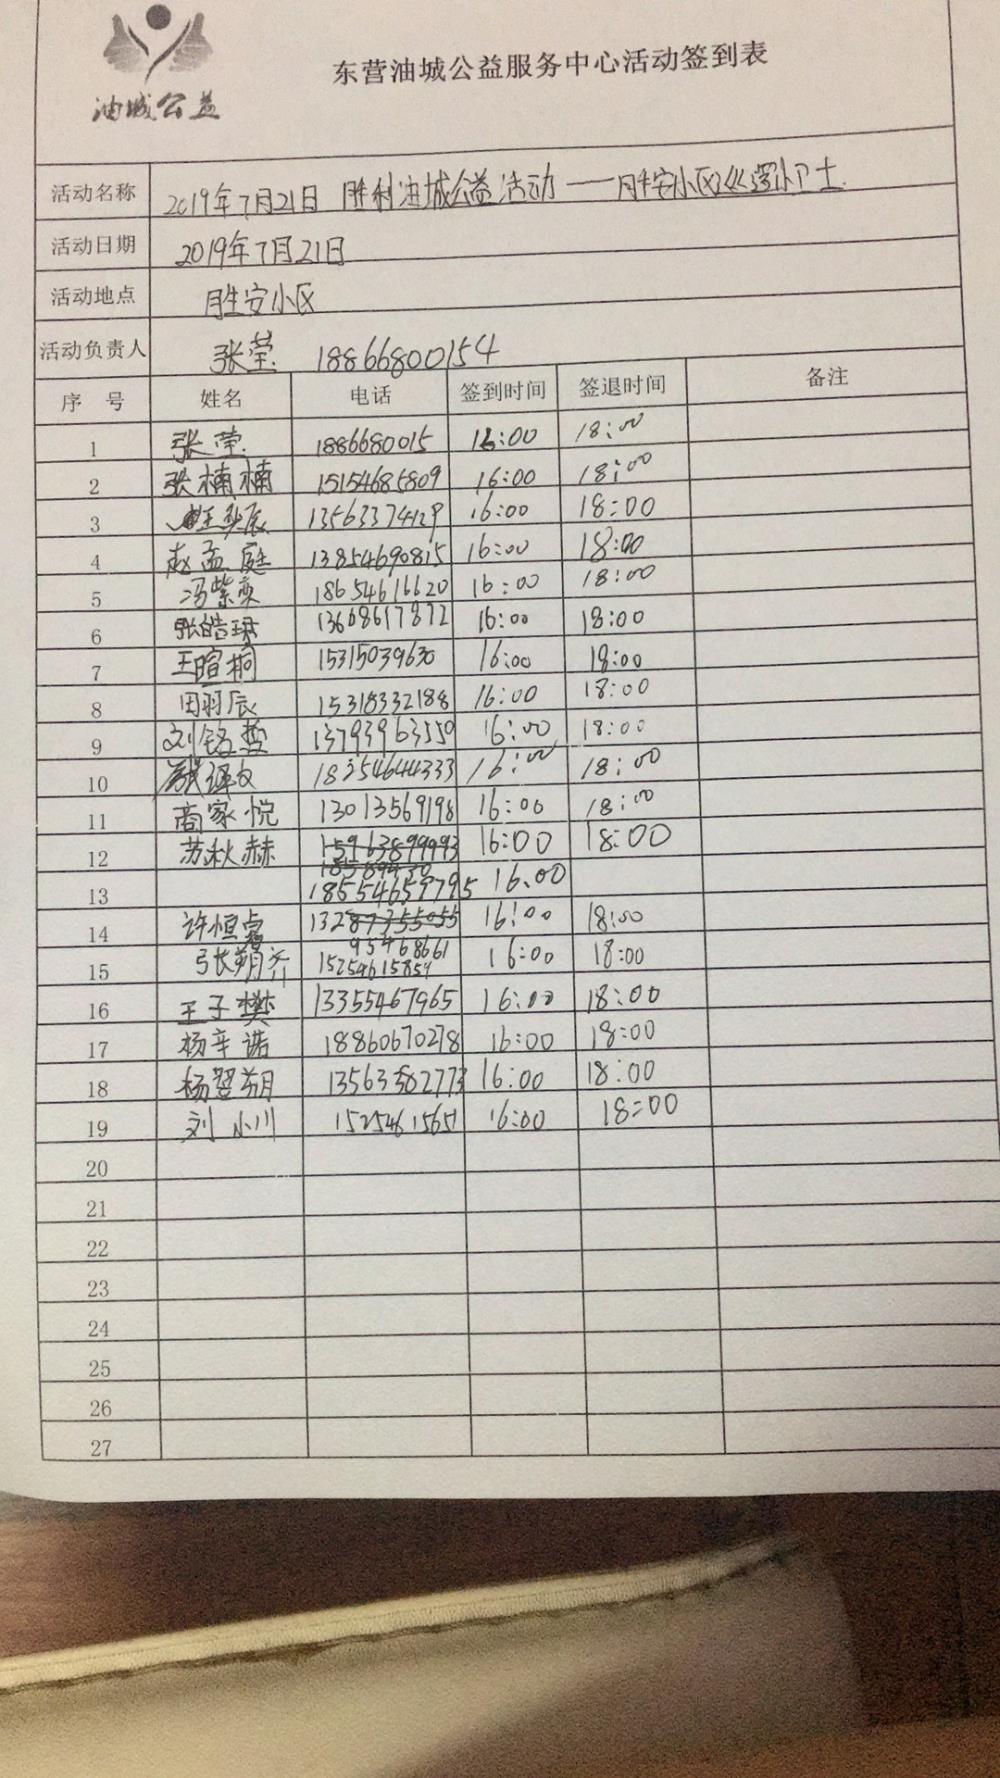 油城公益
东营油城公益服务中心活动签到表
活动名称 2019年7月21日 胜利油城公益活动——胜安小区《萝卜卫士
活动日期 2019年7月21日
活动地点 胜安小区
活动负责人 张莹 18866800154
序号 姓名 电话 签到时间 签退时间 备注
1 张莹 1886680015 16:00 18:00
2 张楠楠 15154685809 16:00 18:00
3 13563374129 16:00 18:00
4 赵孟庭 13854690815 16:00 18:00
5 冯紫奕 18654616620 16:00 18:00
6 张皓琪 13608617872 16:00 18:00
7 王暄桐 15315039630 16:00 18:00
8 田羽辰 15318332188 16:00 18:00
9 刘铭哲 13793963550 16:00 18:00
10 18254644333 16:00 18:00
11 商家悦 13013569198 16:00 18:00
12 苏秋赫 15963899993 16:00 18:00
13 18554659795 16:00
14 许恒睿 13287355055 16:00 18:00
95468661
15 张朔齐 15254615859 16:00 18:00
16 王子樊 13355467965 16:00 18:00
17 杨辛诺 18860670278 16:00 18:00
18 杨翌朔 13563582773 16:00 18:00
19 刘小川 1525461565 16:00 18:00
20
21
22
23
24
25
26
27